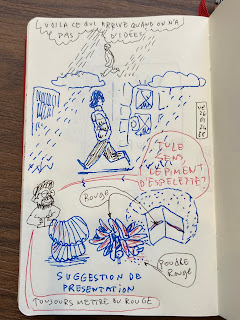 VOILÀ CE QUI ARRIVE QUAND ON N'A
PAS
D'IDÉES
VE
26
01
24
TU LE
SENS,
LE PIMENT
D'ESPELETTE?
ROUGE
POUDRE
ROUGE
SUGGESTION DE
PRÉSENTATION
TOUJOURS METTRE DU ROUGE